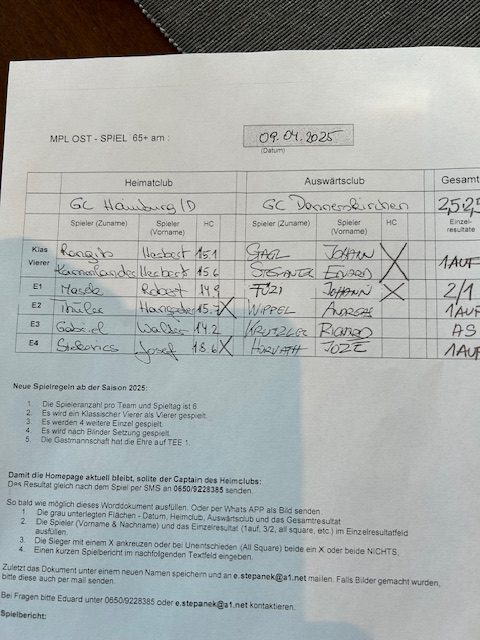 MPL OST - SPIEL 65+ am : 09.04.2025
(Datum)
Heimatclub Auswärtsclub Gesamt
GC Hainburg/D GC Donnerskirchen 2,5:2,5
Spieler (Zuname) Spieler (Vorname) HC Spieler (Zuname) Spieler (Vorname) HC Einzel-resultate
Klas Vierer Herbert 15.1 STAGL JOHANN X
Herbert 15.6 EDUARD 1AUF
E1 Robert 14.9 FUZI JOHANN X 2/1
E2 Thüler 15.7 X WIPPEL ANDREAS 1AUF
E3 Gabriel Walter 14.2 KRUTZLER RICHARD AS
E4 Josef 18.6 X HORVATH JOZE 1AUF
Neue Spielregeln ab der Saison 2025:
1. Die Spieleranzahl pro Team und Spieltag ist 6
2. Es wird ein Klassischer Vierer als Vierer gespielt.
3. Es werden 4 weitere Einzel gespielt.
4. Es wird nach Blinder Setzung gespielt.
5. Die Gastmannschaft hat die Ehre auf TEE 1.
Damit die Homepage aktuell bleibt, sollte der Captain des Heimclubs:
Das Resultat gleich nach dem Spiel per SMS an 0650/9228385 senden.
So bald wie möglich dieses Worddokument ausfüllen. Oder per Whats APP als Bild senden
1 Die grau unterlegten Flächen - Datum, Heimclub, Auswärtsclub und das Gesamtresultat
2. Die Spieler (Vorname & Nachname) und das Einzelresultat (1auf, 3/2, all square, etc.) im Einzelresultatfeld
ausfüllen.
3. Die Sieger mit einem X ankreuzen oder bei Unentschieden (All Square) beide ein X oder beide NICHTS.
4. Einen kurzen Spielbericht im nachfolgenden Textfeld eingeben.
Zuletzt das Dokument unter einem neuen Namen speichern und an e.stepanek@a1.net mailen. Falls Bilder gemacht wurden,
bitte diese auch per mail senden.
Bei Fragen bitte Eduard unter 0650/9228385 oder e.stepanek@a1.net kontaktieren.
Spielbericht: